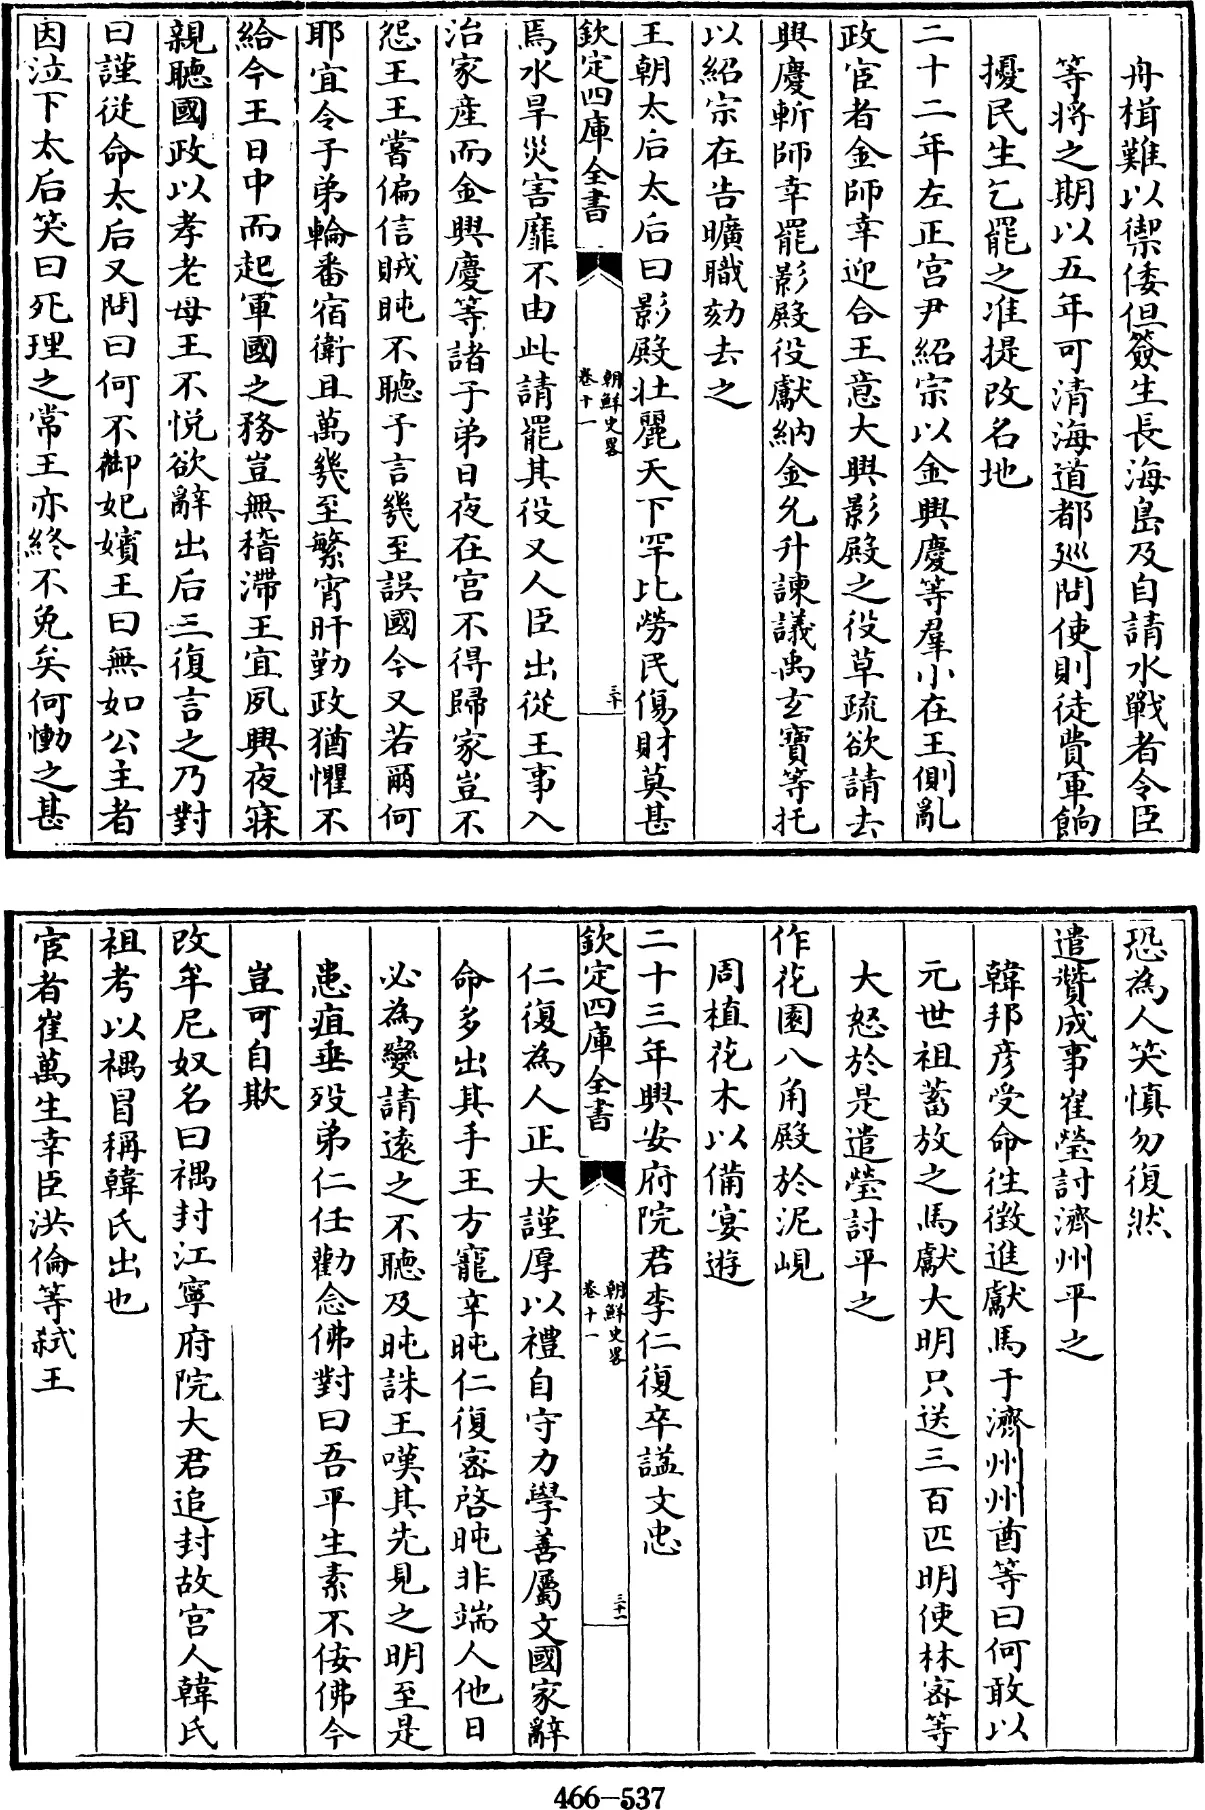 舟楫難以禦倭但簽生長海島及自請水戰者令臣
等將之期以五年可清海道都廵問使則徒費軍餉
擾民生乞罷之准提改名地
二十二年左正宫尹紹宗以金興慶等羣小在王側亂
政宦者金師幸迎合王意大興影殿之役草疏欲請去
興慶斬師幸罷影殿役獻納金允升諫議禹玄寶等托
以紹宗在告曠職劾去之
王朝太后太后曰影殿壯麗天下罕比勞民傷財莫甚
欽定四庫全書
朝鮮史畧
卷十一
三十
焉水旱災害靡不由此請罷其役又人臣出從王事入
治家産而金興慶等諸子弟日夜在宫不得歸家豈不
怨王王嘗偏信賊盹不聴予言幾至誤國今又若爾何
耶宜令子弟輪番宿衛且萬幾至繁宵旰勤政猶懼不
給今王日中而起軍國之務豈無稽滯王宜夙興夜寐
親聽國政以孝老母王不悦欲辭出后三復言之乃對
曰謹從命太后又問曰何不御妃嬪王曰無如公主者
因泣下太后笑曰死理之常王亦終不免矣何慟之甚
恐為人笑慎勿復然
遣贊成事崔瑩討濟州平之
韓邦彦受命往徴進獻馬于濟州州酋等曰何敢以
元世祖蓄放之馬獻大明只送三百匹明使林宻等
大怒於是遣瑩討平之
作花園八角殿於泥峴
周植花木以備宴遊
二十三年興安府院君李仁復卒諡文忠
欽定四庫全書
朝鮮史畧
卷十一
三十一
仁復為人正大謹厚以禮自守力學善屬文國家辭
命多出其手王方寵辛盹仁復宻啓盹非端人他日
必為變請遠之不聽及盹誅王嘆其先見之明至是
患疽垂殁弟仁任勸念佛對曰吾平生素不佞佛今
豈可自欺
改牟尼奴名曰禑封江寧府院大君追封故宫人韓氏
祖考以禑冒稱韓氏出也
宦者崔萬生幸臣洪倫等弑王
466-537